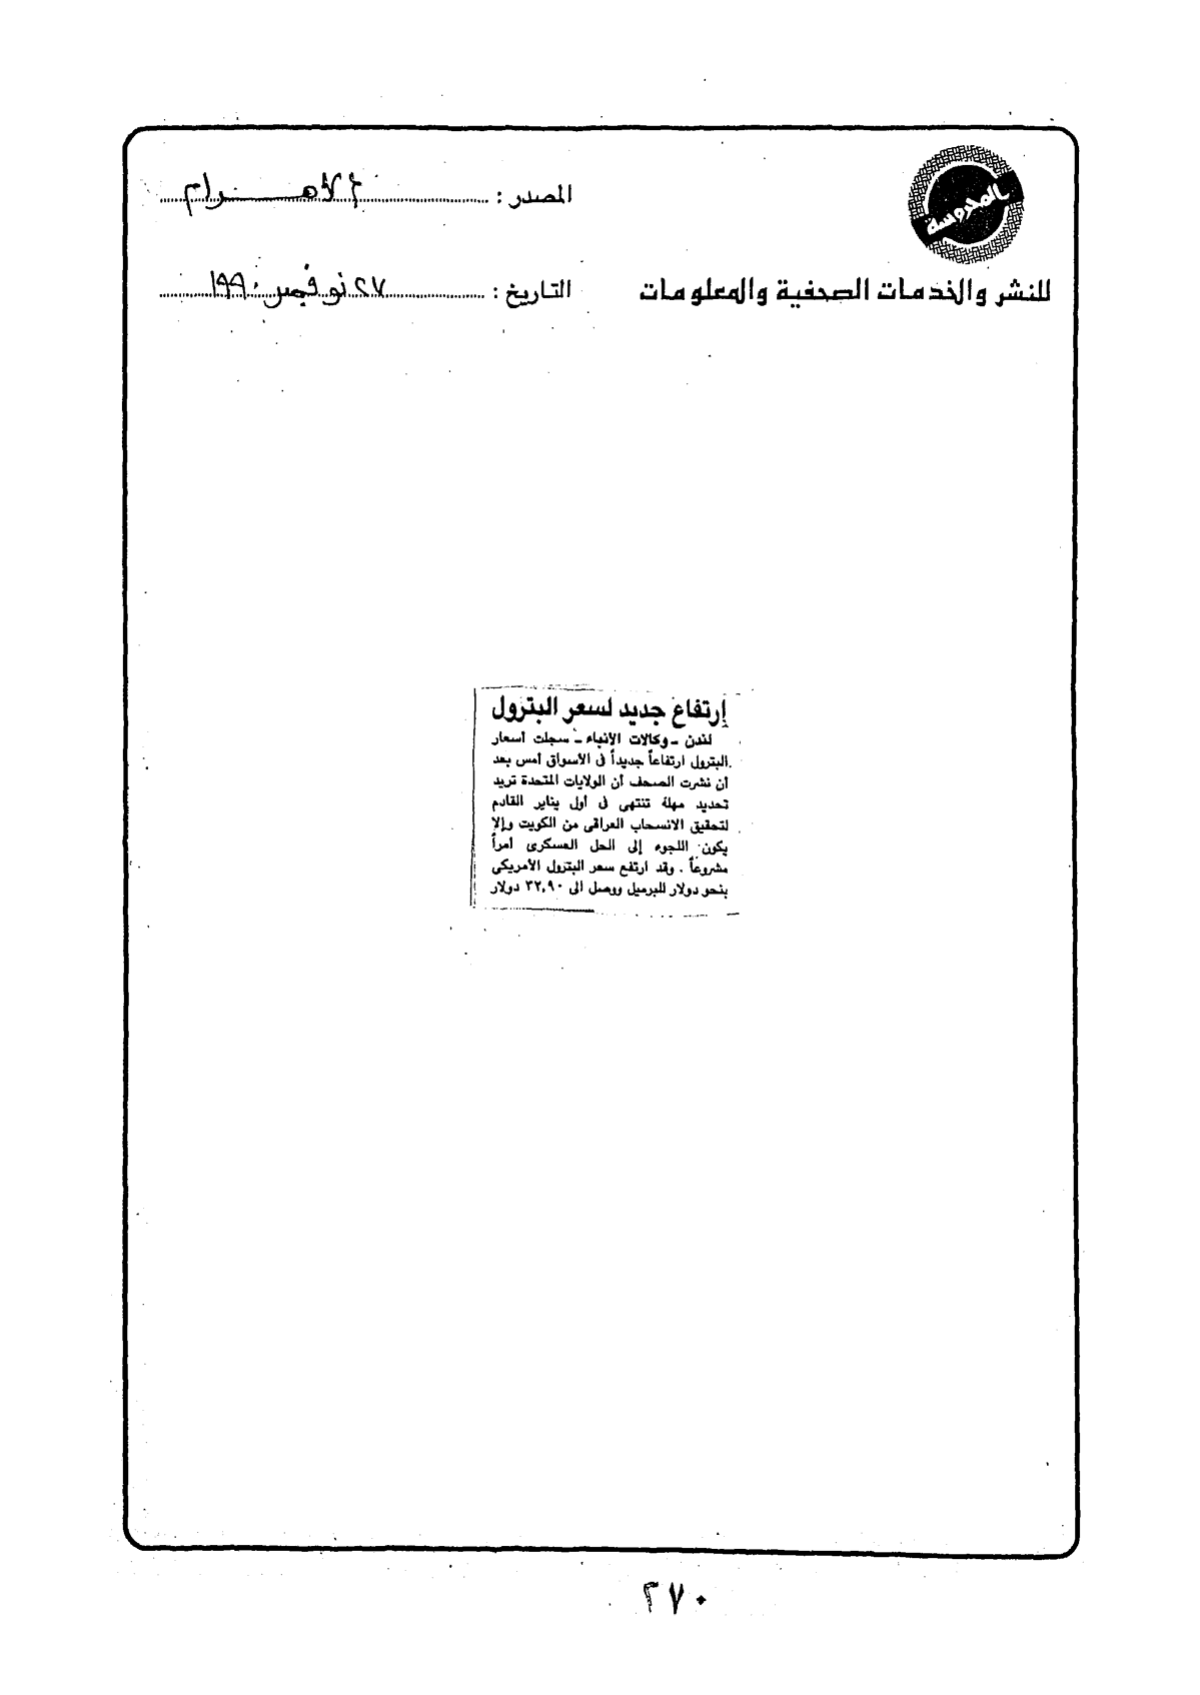 المحروسة
للنشر والخدمات الصحفية والمعلومات
المصدر : الأهرام
التاريخ : ٢٧ نوفمبر ١٩٩٠
إرتفاع جديد لسعر البترول
لندن ــ وكالات الأنباء ــ سجلت أسعار
البترول ارتفاعاً جديداً فى الأسواق أمس بعد
أن نشرت الصحف أن الولايات المتحدة تريد
تحديد مهلة تنتهى فى أول يناير القادم
لتحقيق الانسحاب العراقى من الكويت وإلا
يكون اللجوء إلى الحل العسكرى أمراً
مشروعاً . وقد ارتفع سعر البترول الأمريكى
بنحو دولار للبرميل ووصل الى ٣٢,٩٠ دولار
٢٧٠